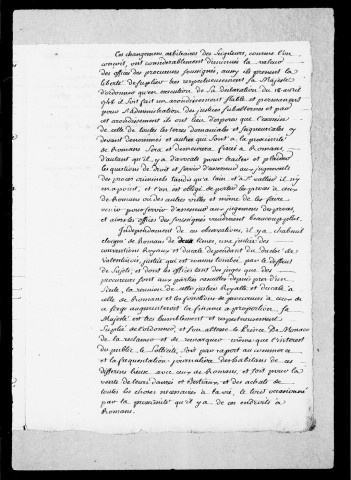 Ces changemens arbitraires des Seigneurs, comme l'on
conçoit, ont considerablement diminués la valeur
des offices des procureurs soussignés, aussy ils prenent la
liberté de suplier tres respectueusement sa Majesté
d'ordonner qu'en execution de sa declaration du 18 avril
il soit fait un arondissement stable et permanent
pour l'administration des justices subalternes et par
cet arondissement ils ont lieu d'esperer que l'exercice
de celle de toutes les terres domaniales et seigneuriales cy
devant denommées et autres qui sont a la proximité
de Romans sera et demeurera fixée a Romans,
d'autant qu'il y a d'avocats pour traiter et plaider
les questions de droit et servir d'assesseur aux jugements
des proces criminels tandis qu'a et a St vallier il n'y
en a point, et l'on est obligé de porter les proces a ceux
de Romans ou des autres villes et même de les faire
venir pour servir d'assesseur aux jugemens des proces,
et ainsi les offices des soussignés vaudront beaucoup plus.
Independamment de ces observations, il y a
eloigné de Romans de deux lieues, une justice des
conventions Royaux et ducale dependant du duché de
Valentinois, justice qui est comme tombée par le deffaut
de sujets, et dont les offices tant des juges que des
procureurs sont aux parties casuelles depuis pres d'un
siecle, la reunion de cette justice Royalle et ducale a
celle de Romans et les fonctions de procureurs a ceux de
ce siege augmenteront la finance a proportion, sa
Majesté est tres humblement et respectueusement
supliée de l'ordonner, et son altesse le Prince De Monaco
de la reclamer et de remarquer même que l'interest
du public le sollicite, soit par raport au commerce
et la frequentation journaliere des habitans de ces
differens lieux avec ceux de Romans, et soit pour la
vente de leurs danrées et Bestiaux et des achats de
toutes les choses necessaires a la vie, le tout occasionné
par la proximité qu'il y a de ces endroits a
Romans.